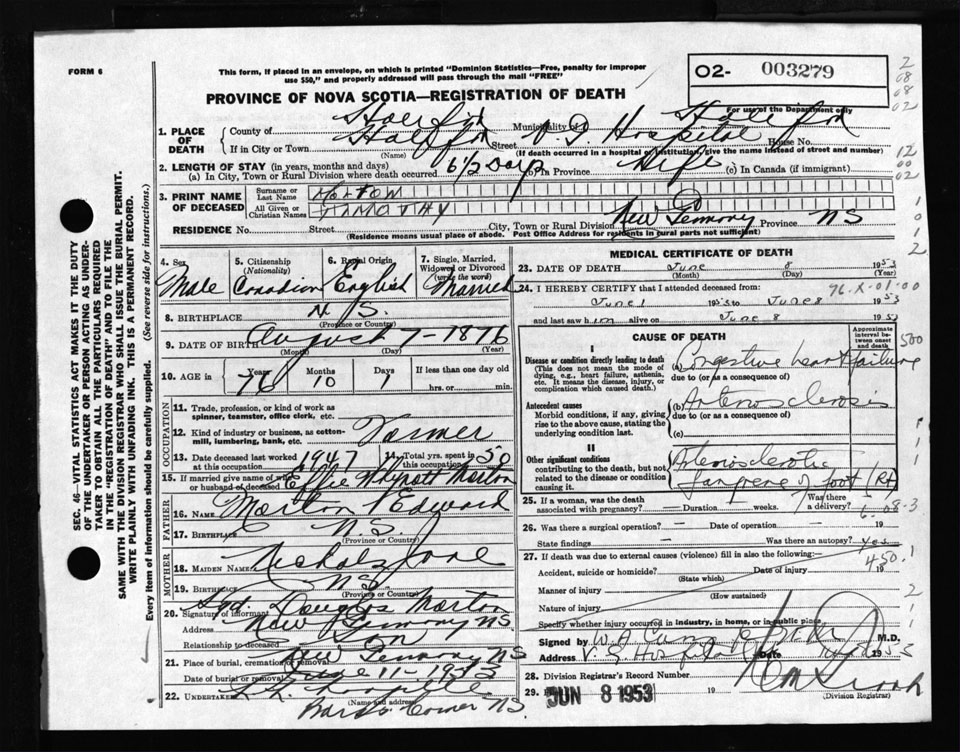 FORM 6
This form, if placed in an envelope, on which is printed "Dominion Statistics—Free, penalty for improper
use $50," and properly addressed will pass through the mail "FREE"
O2- 003279
2
08
08
02
PROVINCE OF NOVA SCOTIA—REGISTRATION OF DEATH
For use of the Department only
1. PLACE OF DEATH
County of Halifax Municipality Halifax
If in City or Town Halifax Street V. G. Hospital House No.
(Name) (If death occurred in a hospital or institution, give the name instead of street and number)
2. LENGTH OF STAY (in years, months and days)
(a) In City, Town or Rural Division where death occurred 6 1/2 Days (b) In Province Life (c) In Canada (if immigrant)
12
00
02
3. PRINT NAME OF DECEASED
Surname or Last Name MORTON
All Given or Christian Names TIMOTHY
RESIDENCE No. Street City, Town or Rural Division New Province NS
(Residence means usual place of abode. Post Office Address for residents in rural parts not sufficient)
SEC. 46—VITAL STATISTICS ACT MAKES IT THE DUTY
OF THE UNDERTAKER OR PERSON ACTING AS UNDER-
TAKER TO OBTAIN ALL THE PARTICULARS REQUIRED
IN THE "REGISTRATION OF DEATH" AND TO FILE THE
SAME WITH THE DIVISION REGISTRAR WHO SHALL ISSUE THE BURIAL PERMIT.
WRITE PLAINLY WITH UNFADING INK. THIS IS A PERMANENT RECORD.
Every item of information should be carefully supplied. (See reverse side for instructions.)
4. Sex Male
5. Citizenship (Nationality) Canadian
6. Racial Origin English
7. Single, Married, Widowed or Divorced (write the word) Married
8. BIRTHPLACE N. S.
(Province or Country)
9. DATE OF BIRTH August 7-1876
(Month) (Day) (Year)
10. AGE in Years 76 Months 10 Days 1 If less than one day
hrs. or min.
OCCUPATION
11. Trade, profession, or kind of work as
spinner, teamster, office clerk, etc.
12. Kind of industry or business, as cotton-
mill, lumbering, bank, etc. Farmer
13. Date deceased last worked
at this occupation 1947 14. Total yrs. spent in
this occupation 50
15. If married give name of wife
or husband of deceased Effie Whynott Morton
FATHER
16. Name Morton Edward
17. Birthplace N.S.
(Province or Country)
MOTHER
18. MAIDEN NAME Jane
19. BIRTHPLACE NS
(Province or Country)
20. Signature of informant Sgd. Douglas Morton
Address New NS
Relationship to deceased Son
21. Place of burial, cremation or removal New NS
Date of burial or removal June 11-1953
22. UNDERTAKER
(Name and address)
Corner NS
MEDICAL CERTIFICATE OF DEATH
23. DATE OF DEATH June 8 1953
(Month) (Day) (Year)
24. I HEREBY CERTIFY that I attended deceased from:
June 1 1953 to June 8 1953
and last saw him alive on June 8 1953
CAUSE OF DEATH
Approximate interval between onset and death
I
Disease or condition directly leading to death
(This does not mean the mode of
dying, e.g., heart failure, asthenia,
etc. It means the disease, injury, or
complication which caused death.)
Congestive heart failure
due to (or as a consequence of)
Antecedent causes
Morbid conditions, if any, giving
rise to the above cause, stating the
underlying condition last.
(b) Arteriosclerosis
due to (or as a consequence of)
(c)
II
Other significant conditions
contributing to the death, but not
related to the disease or condition
causing it.
Arteriosclerotic
gangrene of foot (Rt)
25. If a woman, was the death
associated with pregnancy? Duration weeks. Was there a delivery?
26. Was there a surgical operation? Date of operation 19
State findings Was there an autopsy? Yes
27. If death was due to external causes (violence) fill in also the following:
Accident, suicide or homicide? Date of injury 19
(State which)
Manner of injury
(How sustained)
Nature of injury
Specify whether injury occurred in industry, in home, or in public place
Signed by W.A. M.D.
Address V. G. Hospital Date
28. Division Registrar's Record Number
29. JUN 8 1953 19
(Division Registrar)